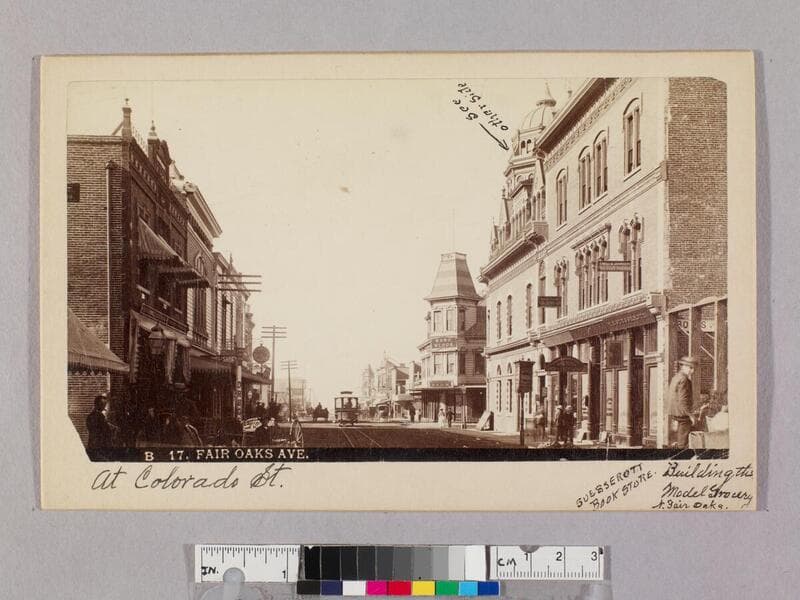 See
other side
B 17. FAIR OAKS AVE.
At Colorado St.
GUESSEROTT
BOOK STORE.
Building the
Model Grocery
N. Fair Oaks.
IN. 1
CM 1 2 3